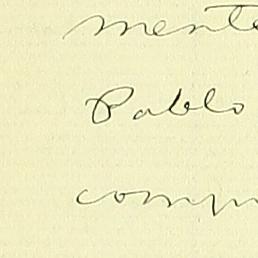 mente
Pablo
comp